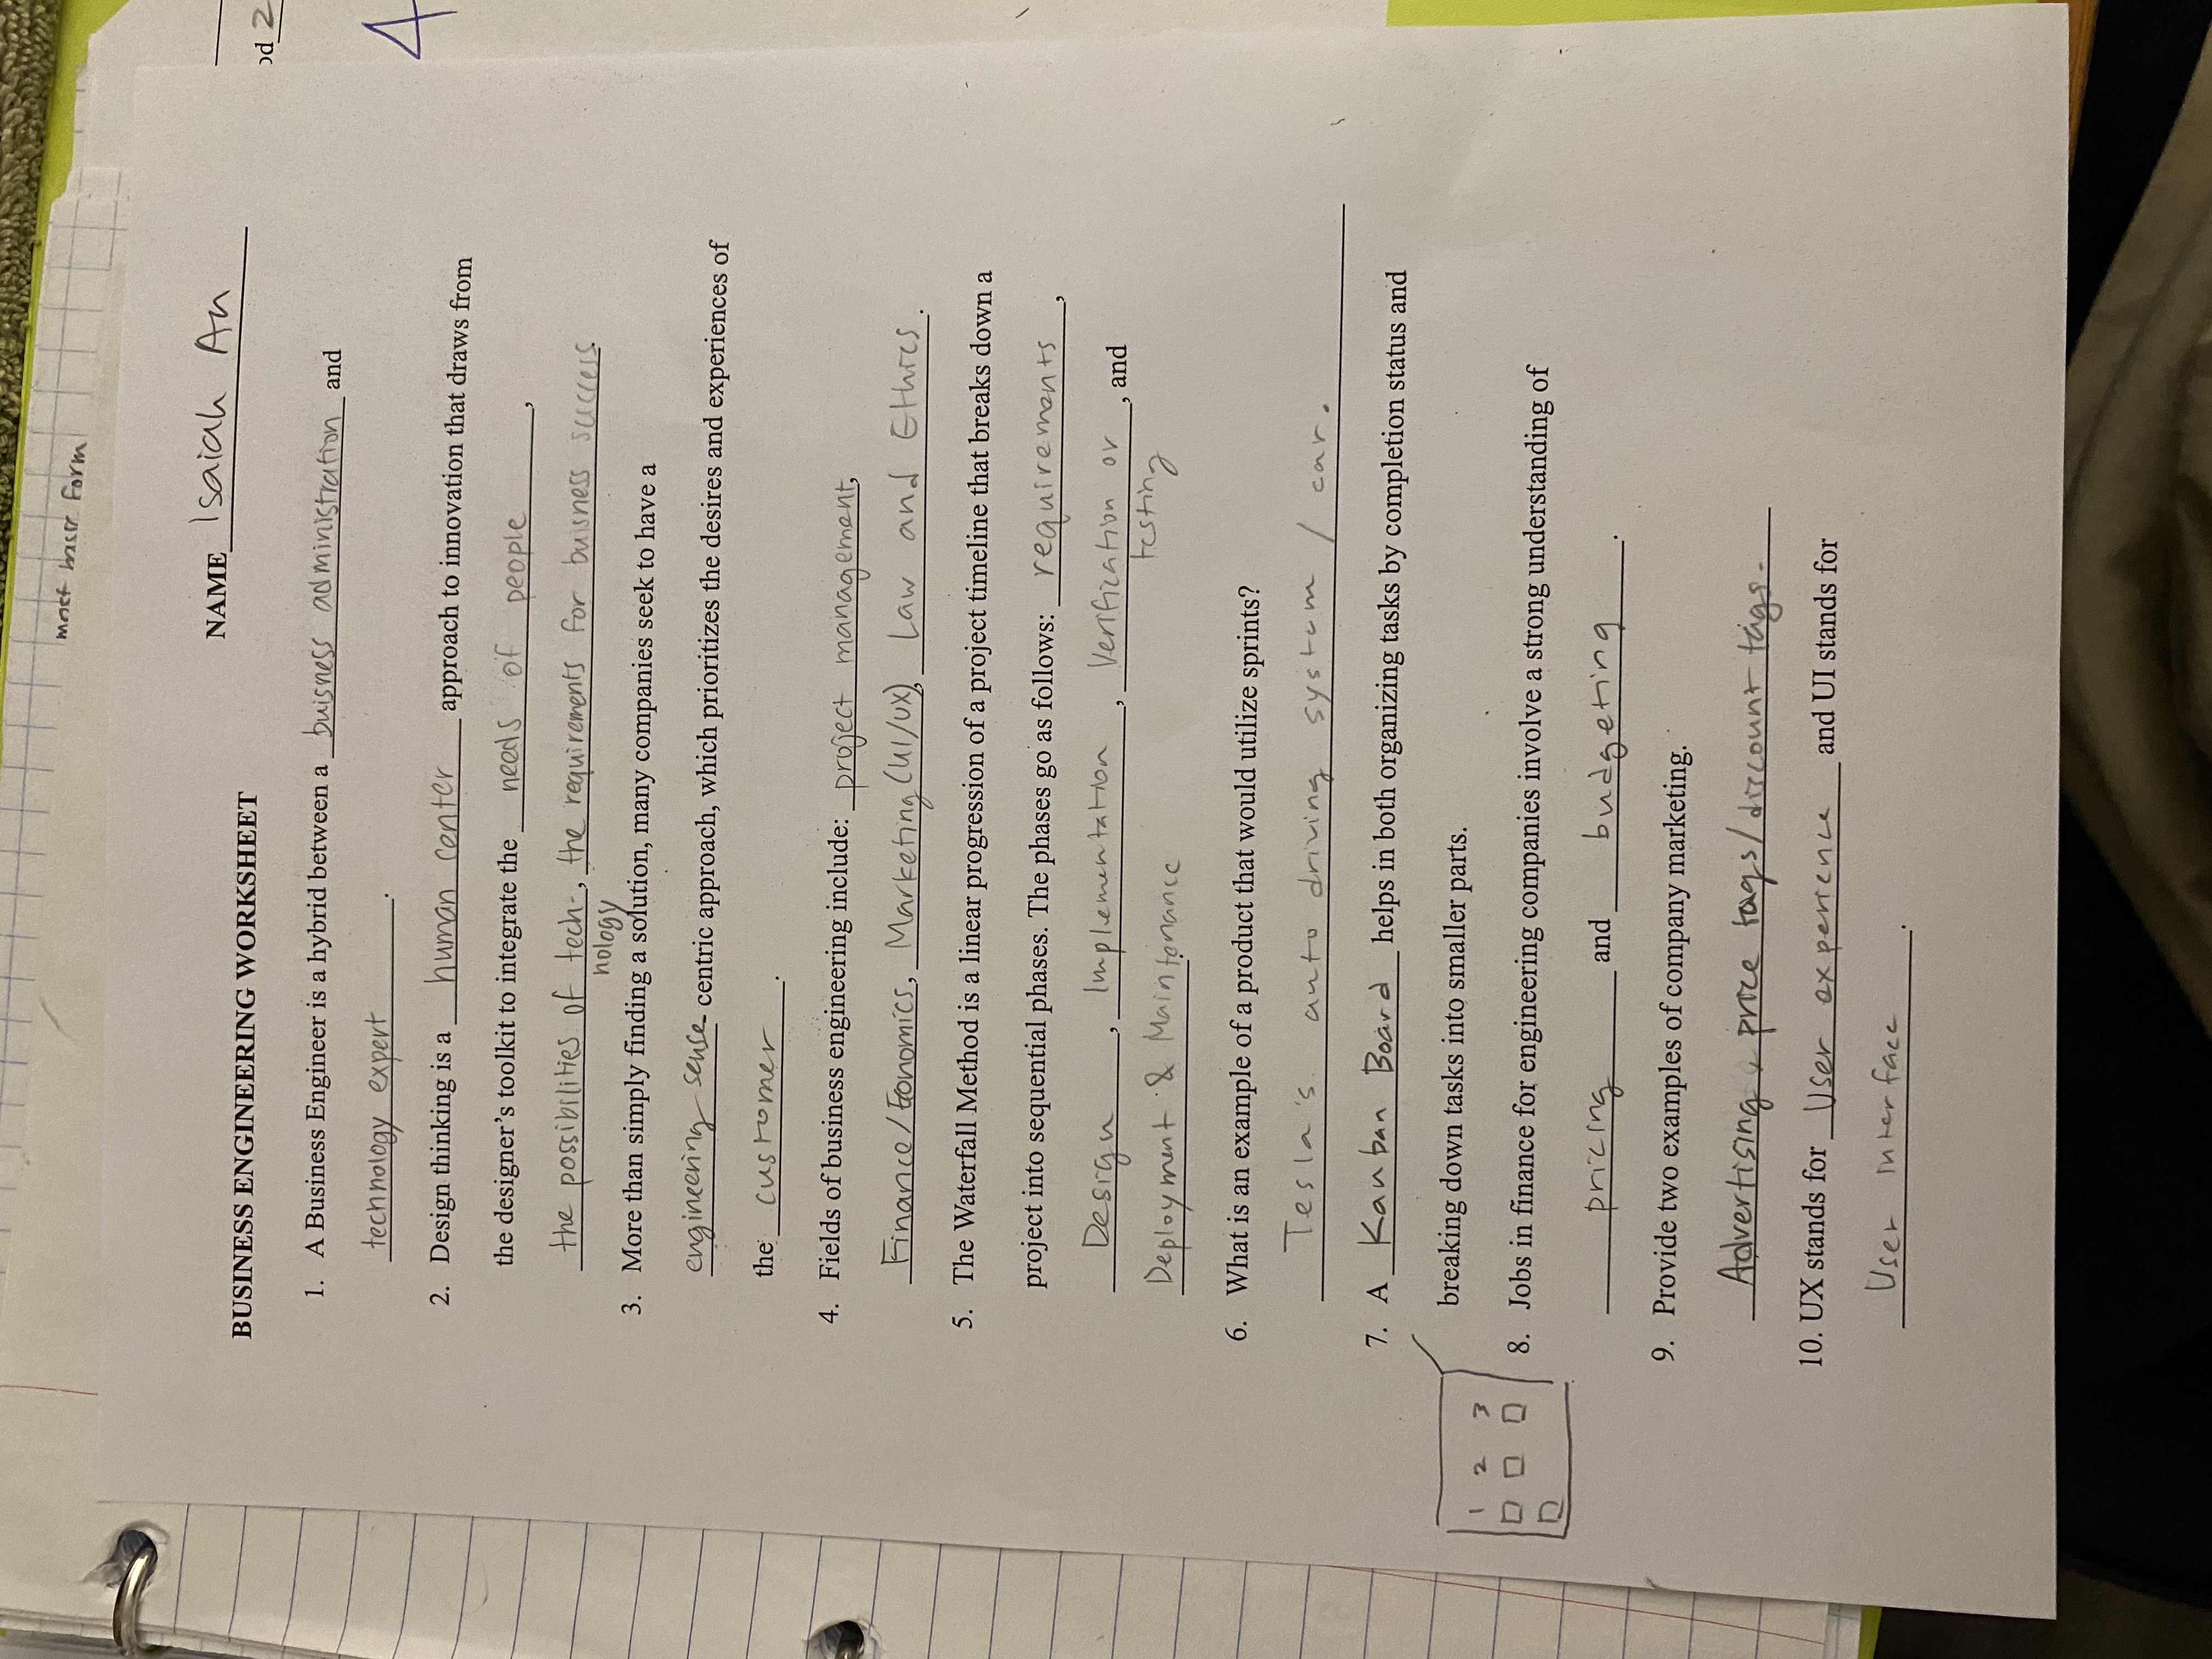 most basic form
NAME Isaiah An
BUSINESS ENGINEERING WORKSHEET
od 2
1. A Business Engineer is a hybrid between a buisness administration and
technology expert.
4
2. Design thinking is a human center approach to innovation that draws from
the designer's toolkit to integrate the needs of people,
the possibilities of tech-, the requirements for buisness success.
nology
3. More than simply finding a solution, many companies seek to have a
engineering sense- centric approach, which prioritizes the desires and experiences of
the customer.
4. Fields of business engineering include: project management,
Finance/Economics, Marketing (UI/UX), Law and Ethics.
5. The Waterfall Method is a linear progression of a project timeline that breaks down a
project into sequential phases. The phases go as follows: requirements,
Design, Implementation, Verification or, and
testing
Deployment & Maintenance.
6. What is an example of a product that would utilize sprints?
Tesla's auto driving system / car.
7. A Kanban Board helps in both organizing tasks by completion status and
breaking down tasks into smaller parts.
1 2 3
8. Jobs in finance for engineering companies involve a strong understanding of
pricing and budgeting.
9. Provide two examples of company marketing.
Advertising, price tags/discount tags.
10. UX stands for User experience and UI stands for
User interface.